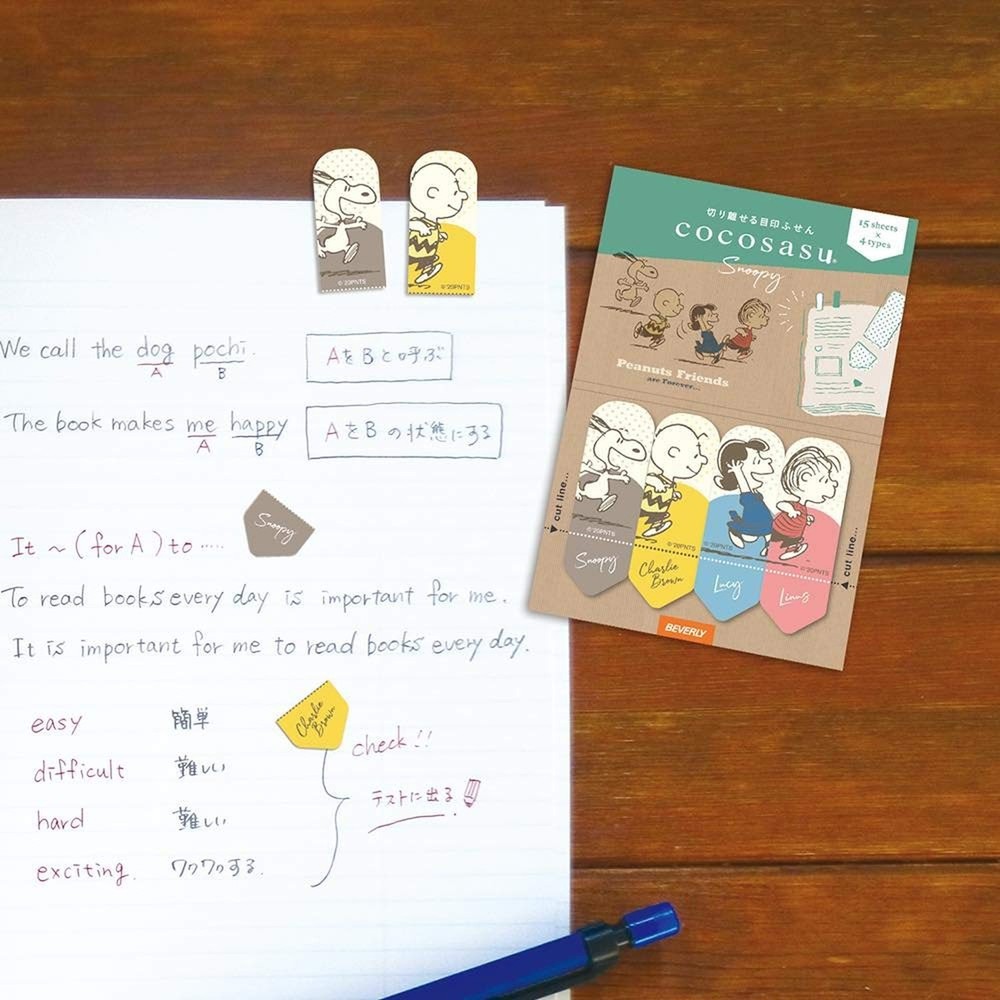 © '20PNTS
© '20PNTS
We call the dog pochi.
A B
AをBと呼ぶ
The book makes me happy
A B
AをBの状態にする
Snoopy
It ~ (for A) to .....
To read books every day is important for me.
It is important for me to read books every day.
easy 簡単
difficult 難しい
hard 難しい
exciting. ワクワクする.
Charlie Brown
check!!
テストに出る
切り離せる目印ふせん
cocosasu®
Snoopy
15 sheets
×
4 types
Peanuts Friends
are Forever...
cut line...
cut line...
© '20PNTS
© '20PNTS
© '20PNTS
© '20PNTS
Snoopy
Charlie
Brown
Lucy
Linus
BEVERLY